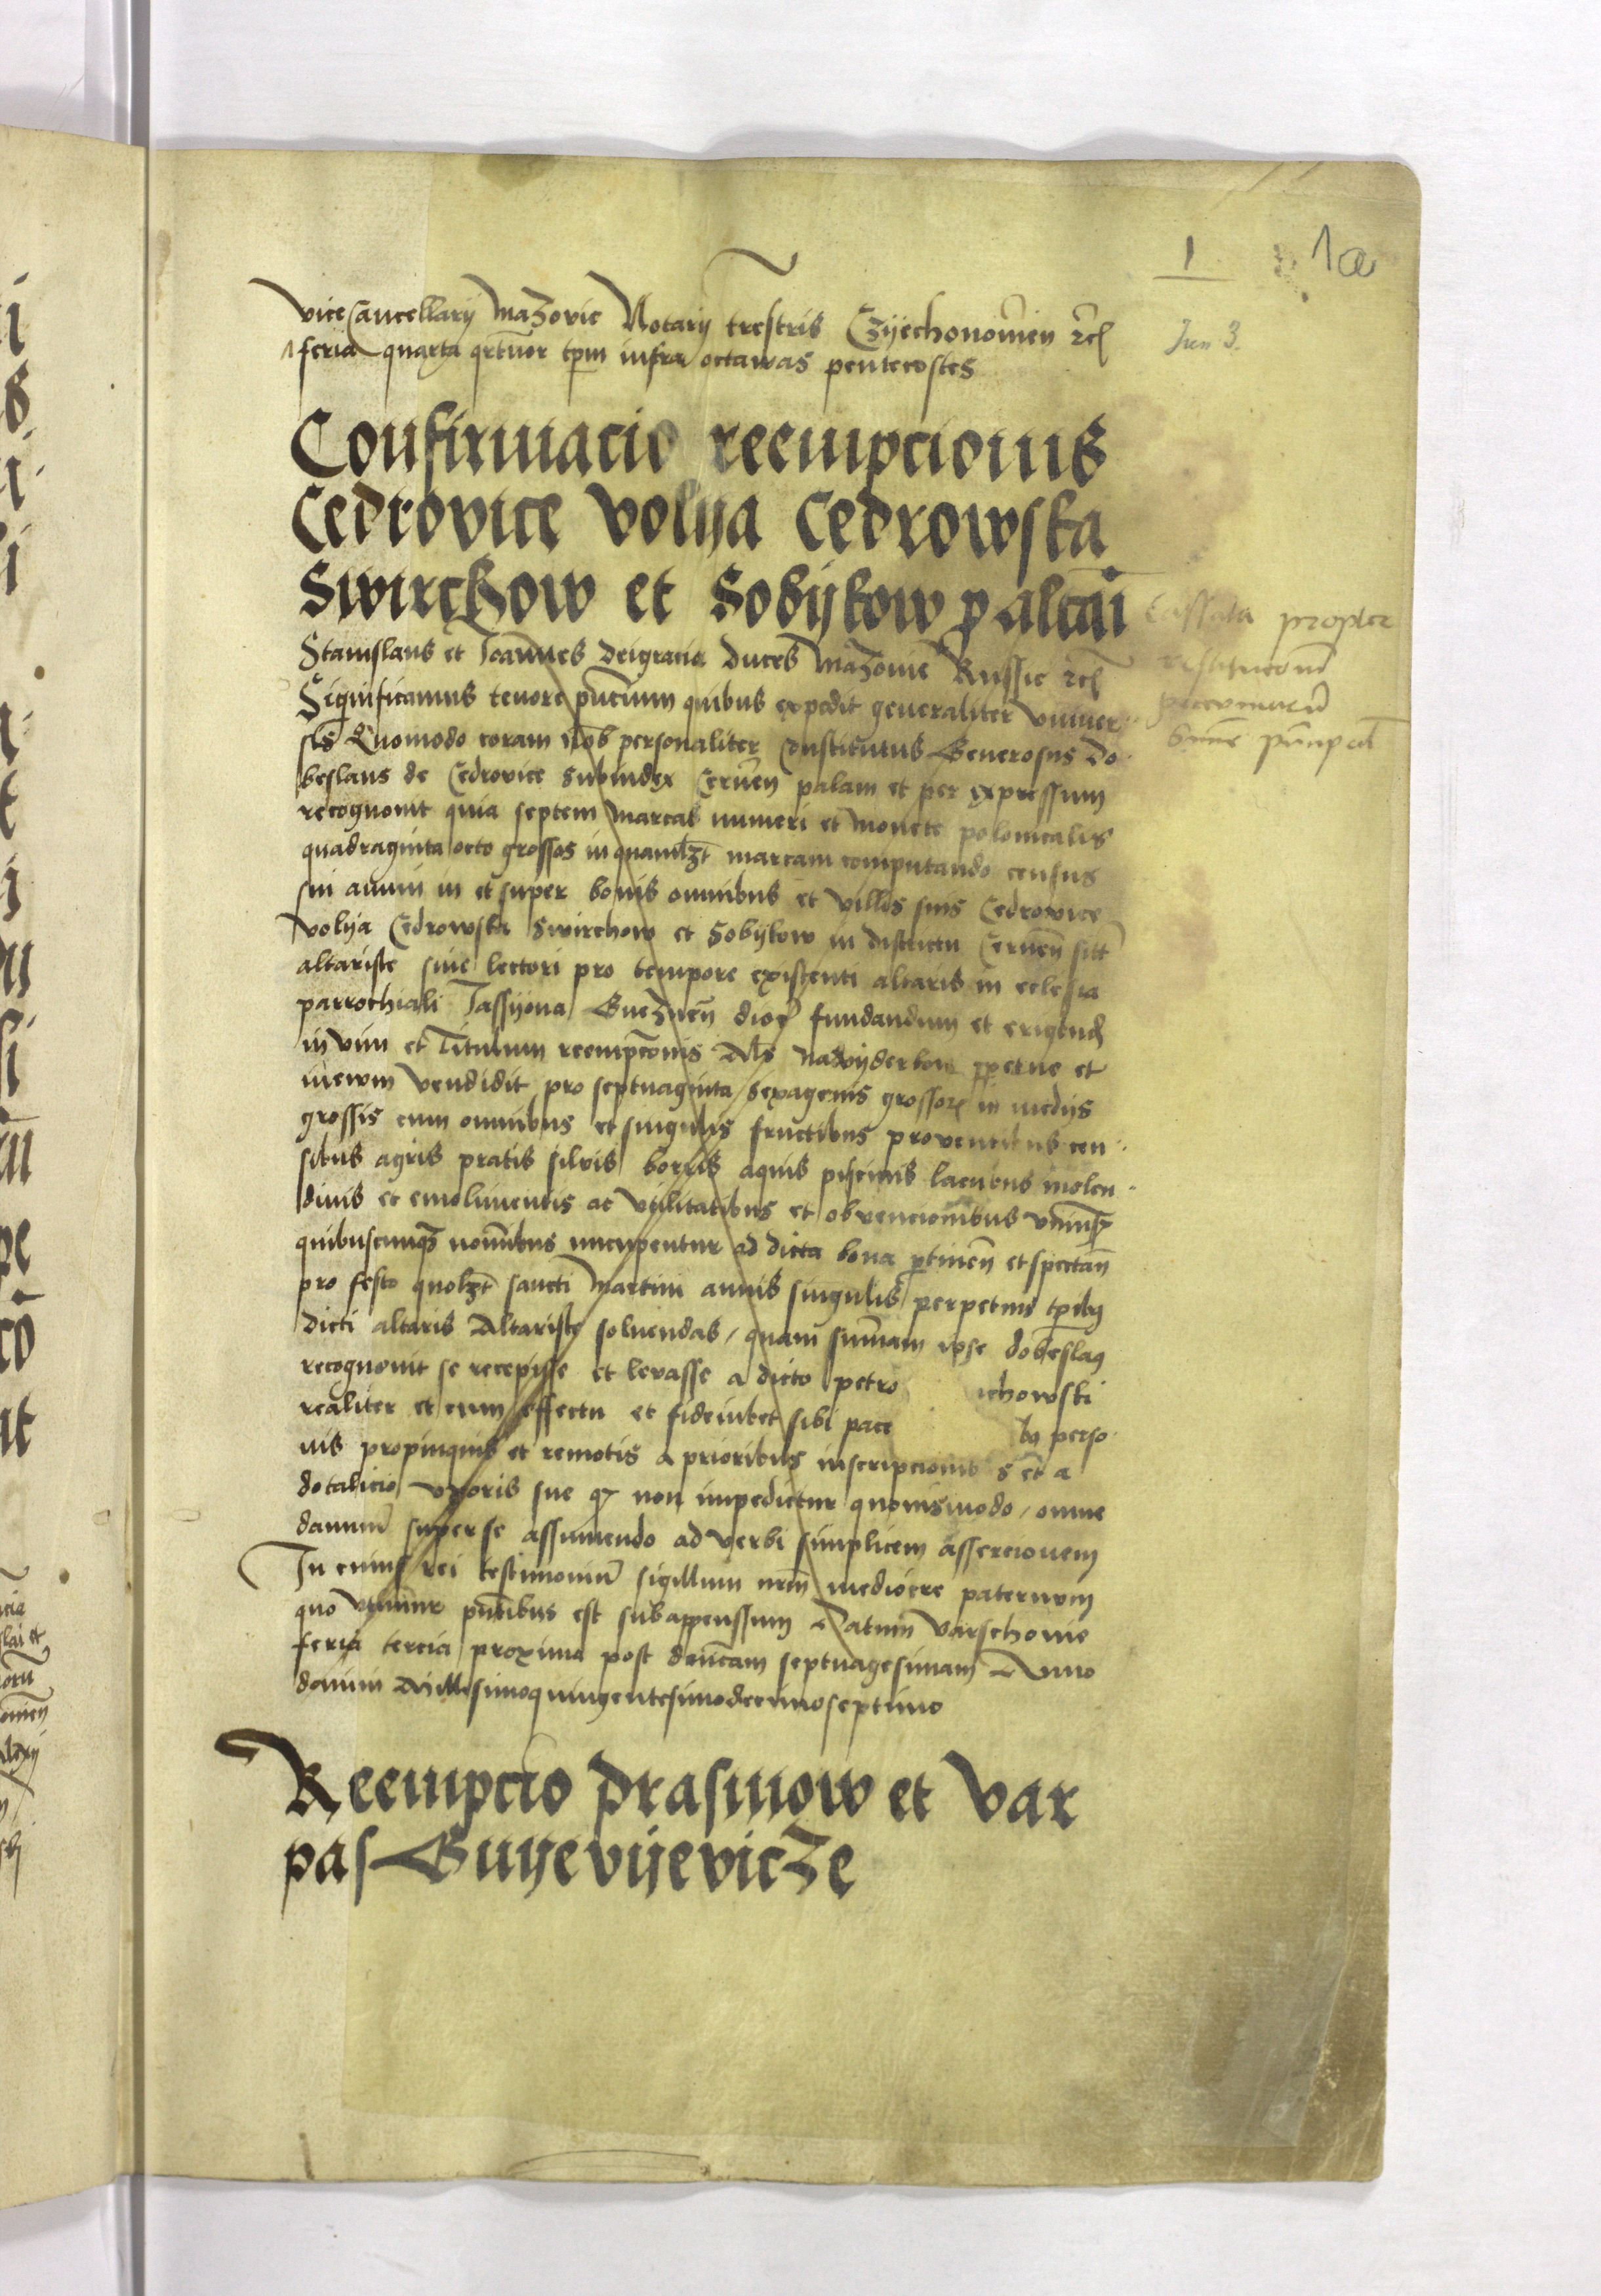 1 1a
vicecancellarij Mazovie Notarij trestris Czyechonowien etc
feria quarta qrtuor tpm infra octawas pentecostes
Jun 3.
Confirmacio reempcionis
Cedrovice volija Cedrowska
Swirchow et Sobijkow p altari
Cassata propter
restitucom
pecuniaru
Stanislaus et Joannes deigracia duces Mazovie Russie etc
Significamus tenore pncium quibus expedit generaliter vniuer
sis Quomodo coram nob personaliter Constitutus Generosus Do
beslaus de Cedrovice Subiudex Cernen palam et per expressum
recognouit quia septem marcas numeri et monete polonicalis
quadraginta octo grossos in quamlzt marcam computando census
sui annui in et super bonis omnibus et villis suis Cedrovice
volija Cedrowska Swirchow et Sobijkow in districtu Cernen sitt
altariste siue lectori pro tempore existenti altaris in ecclesia
parrochiali Jassijona Gneznen dioc fundandum et erigend
in vim et Titulum reempcionis Als nawyderkow ppetue et
inewm vendidit pro septuaginta sexagenis grossor in medijs
grossis cum omnibus et singulis fructibus proventibus cen
sibus agris pratis siluis borris aquis piscinis lacubus molen
dinis et emolimentis ac vtilitatibus et obvencionibus vniusis
quibuscunqz nominibus nuncupentur ad dicta bona ptinen et spectan
pro festo quolzt sancti Martini annis singulis perpetuis tpibus
dicti altaris Altariste soluendas / quam summam ipse dobeslaus
recognouit se recepisse et levasse a dicto petro ichowski
realiter et cum effectu et fideiubet sibi pace bus perso
nis propinquis et remotis a prioribus inscripcionibus et a
dotalicio vxoris sue qz non impedietur quouismodo / omne
damnum super se assumendo ad verbi simplicem assercionem
In cuius rei testimonium sigillum nrm mediocre paternum
quo vtimur pntibus est subappenssum Datum Varschouie
feria tercia proxima post dnicam septuagesimam Anno
domini Millesimoquingentesimodecimoseptimo
Reempcio Drasnow et Var
pas Gnijevijevicze